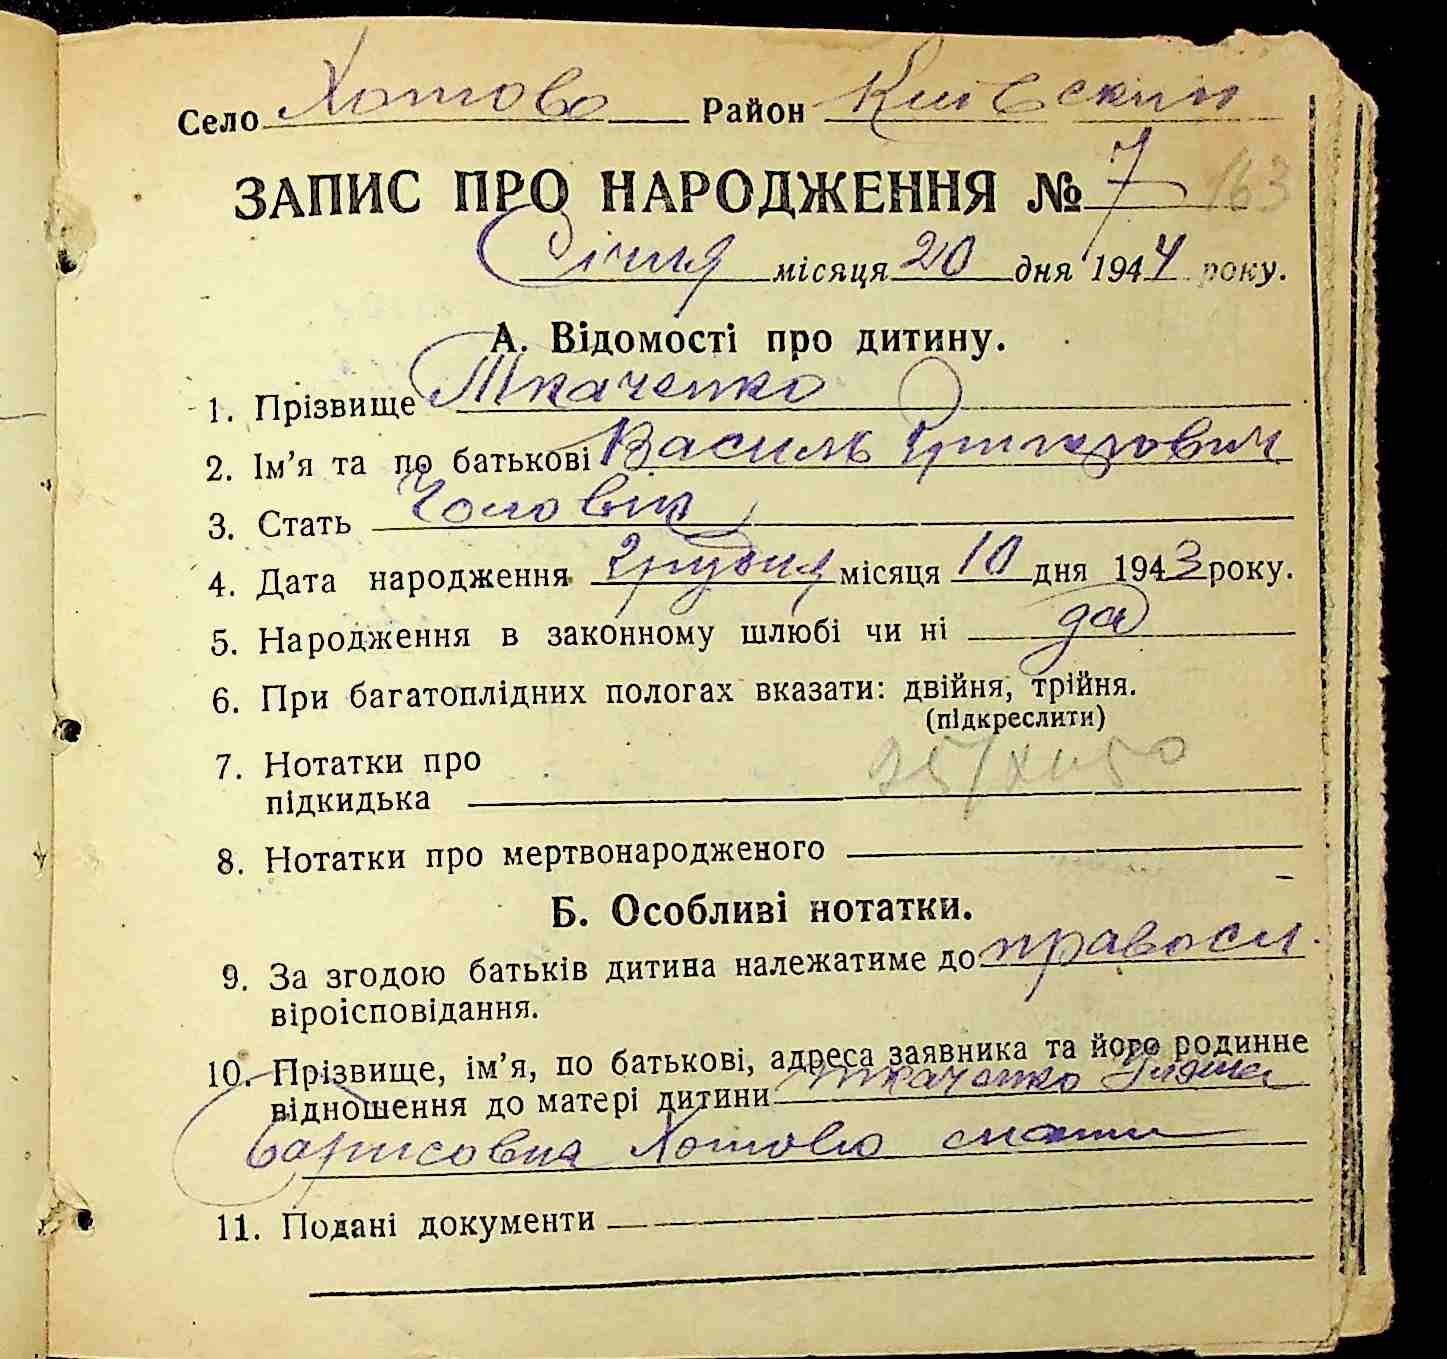 Село Хотово Район Київский
ЗАПИС ПРО НАРОДЖЕННЯ № 7 163
Січня місяця 20 дня 1944 року.
А. Відомості про дитину.
1. Прізвище Ткаченко
2. Ім'я та по батькові Василь Григорович
3. Стать Чоловік
4. Дата народження грудня місяця 10 дня 1943 року.
5. Народження в законному шлюбі чи ні да
6. При багатоплідних пологах вказати: двійня, трійня.
(підкреслити)
7. Нотатки про
підкидька
8. Нотатки про мертвонародженого
Б. Особливі нотатки.
9. За згодою батьків дитина належатиме до правосл.
віроісповідання.
10. Прізвище, ім'я, по батькові, адреса заявника та його родинне
відношення до матері дитини Ткаченко
Борисовна Хотово мати
11. Подані документи